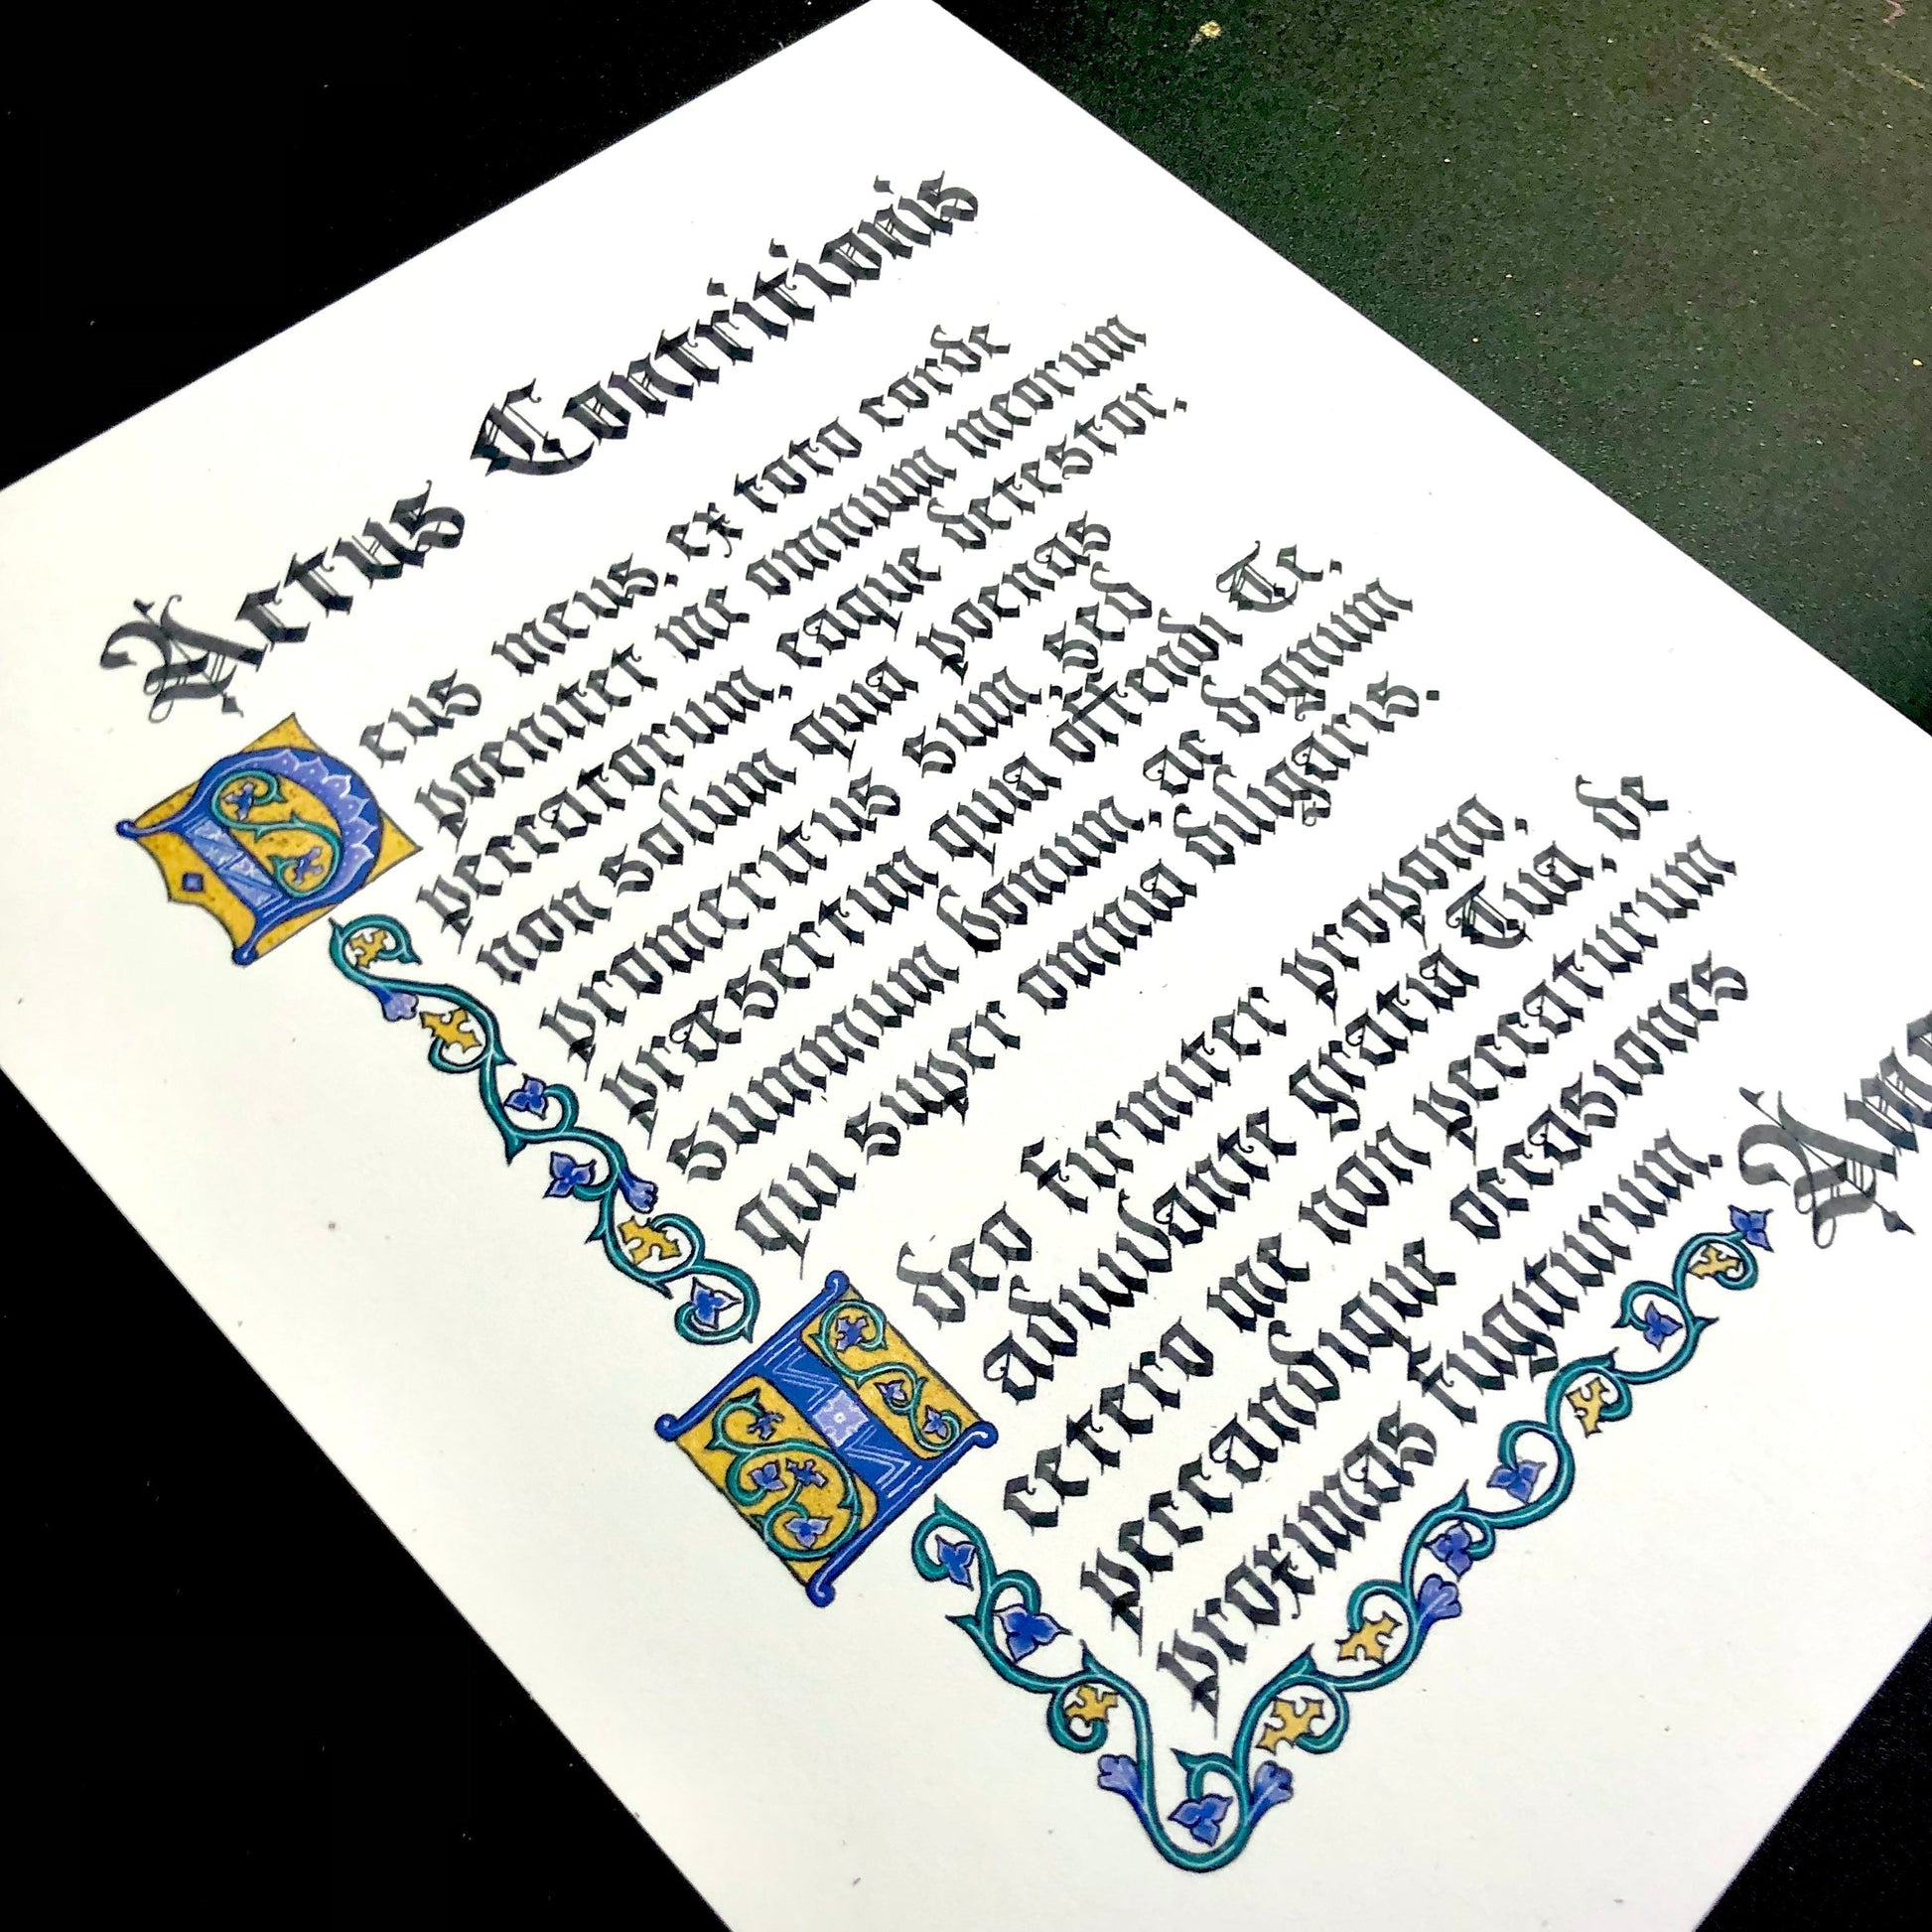 Actus Contritionis
Deus meus, ex toto corde
poenitet me omnium meorum
peccatorum, eaque detestor,
non solum quia poenas
promeritus sum, sed
præsertim quia offendi Te,
summum bonum, ac dignum
qui super omnia diligaris.
Ideo firmiter propono,
adiuvante gratia Tua, de
cetero me non peccaturum
peccandique occasiones
proximas fugiturum.
Am